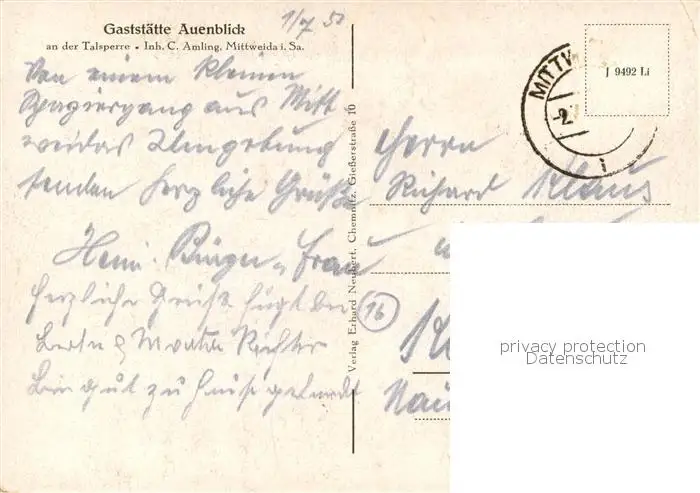 Gaststätte Auenblick
an der Talsperre • Inh. C. Amling, Mittweida i. Sa.
1/7 50
Von einem kleinen
Spaziergang aus Mitt
weidas Umgebung
senden herzliche Grüße
Heini Bürger u Frau
Herzliche Grüße fügt bei
Richter
gut zu Hause gelandet
Verlag Erhard Neubert, Chemnitz, Gießerstraße 16
MITTW
J 9492 Li
-2.
i
Herrn
Richard Klaus
16
privacy protection
Datenschutz